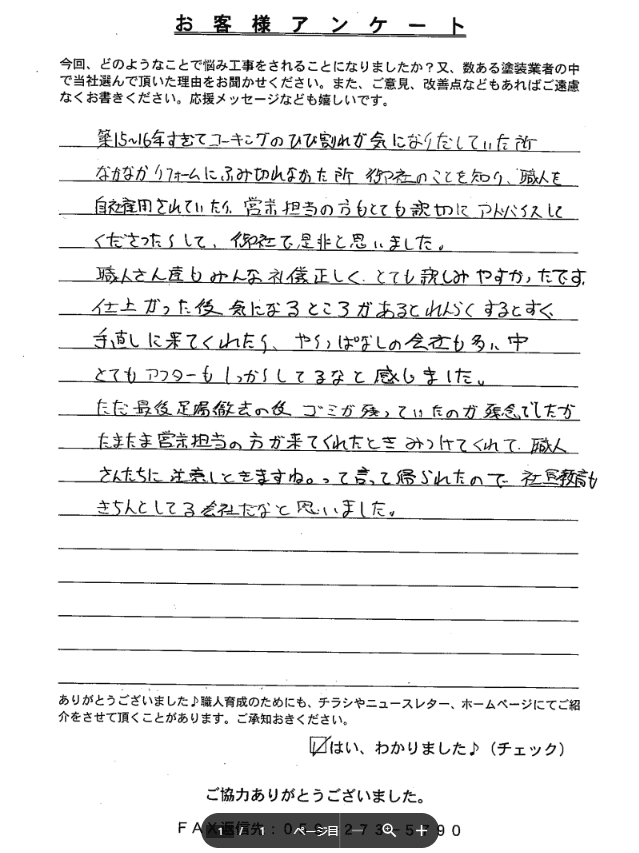 お客様アンケート
今回、どのようなことで悩み工事をされることになりましたか？又、数ある塗装業者の中
で当社選んで頂いた理由をお聞かせください。また、ご意見、改善点などもあればご遠慮
なくお書きください。応援メッセージなども嬉しいです。
築15～16年すぎてコーキングのひび割れが気になりだしていた所
なかなかリフォームにふみ切れなかった所 御社のことを知り、職人を
自社雇用されていたり、営業担当の方もとても親切に アドバイスして
くださったりして、御社で是非と思いました。
職人さん達もみんな礼儀正しく、とても親しみやすかったです。
仕上がった後 気になるところがあるとれんらくするとすぐ
手直しに来てくれたり、やりっぱなしの会社も多い中
とてもアフターもしっかりしてるなと感じました。
ただ最後足場撤去の後 ゴミが残っていたのが残念でしたが
たまたま営業担当の方が来てくれたとき みつけてくれて、職人
さんたちに 注意しときますね。って言って帰られたので 社員教育も
きちんとしてる会社だなと思いました。
ありがとうございました♪職人育成のためにも、チラシやニュースレター、ホームページにてご紹
介をさせて頂くことがあります。ご承知おきください。
はい、わかりました♪（チェック）
ご協力ありがとうございました。
FAX返信先：059-273-5790
1 / 1 ページ目